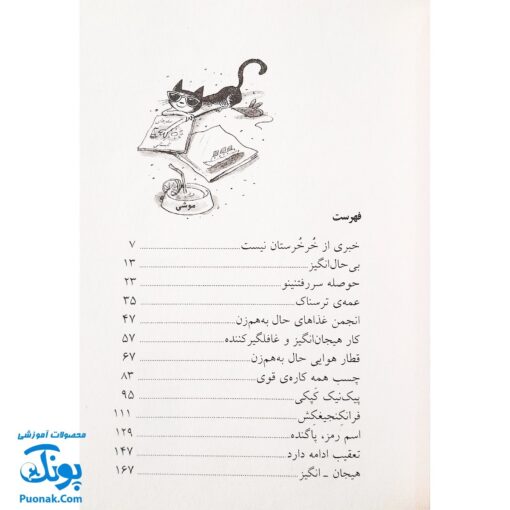 موشی
فهرست
خبری از خُرخُرستان نیست ۷
بی‌حال‌انگیز ۱۳
حوصله سررفتنینو ۲۳
عمه‌ی ترسناک ۳۵
انجمن غذاهای حال به‌هم‌زن ۴۷
کار هیجان‌انگیز و غافلگیرکننده ۵۷
قطار هوایی حال به‌هم‌زن ۶۷
چسب همه کاره‌ی قوی ۸۳
پیک‌نیک کَپکی ۹۵
فرانکِنجیغکِش ۱۱۱
اسم رمز، پاگنده ۱۲۹
تعقیب ادامه دارد ۱۴۷
هیجان ـ انگیز ۱۶۷
محصولات آموزشی
پونک
Puonak.Com